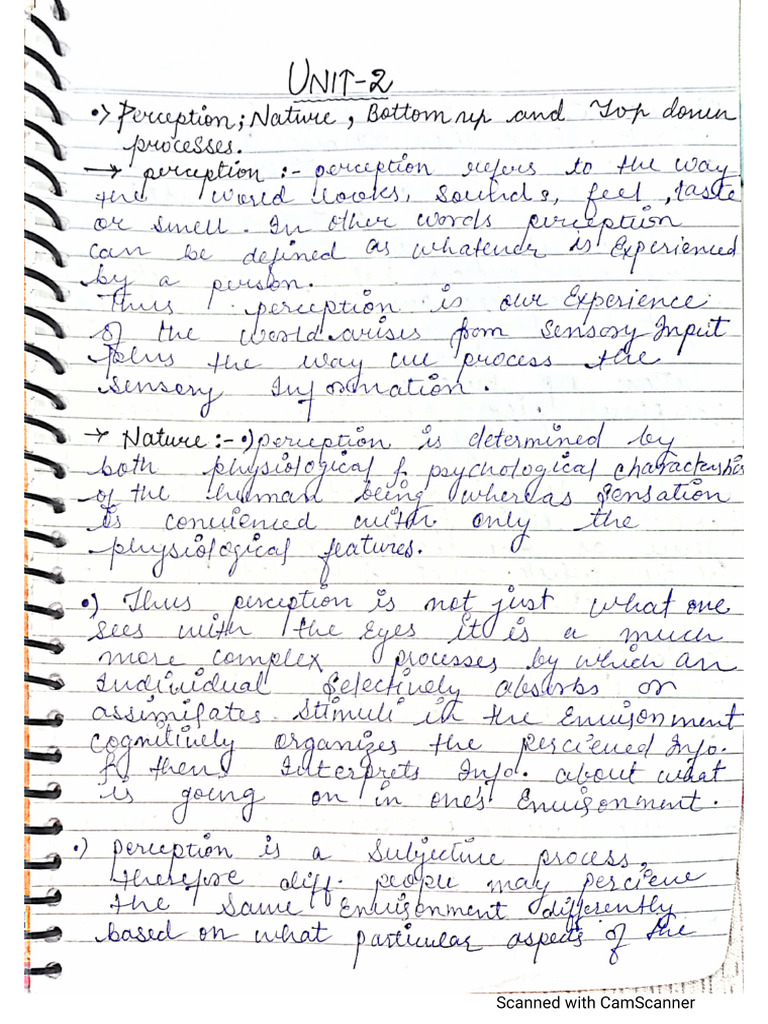 UNIT-2
•> Perception; Nature, Bottom up and Top down
processes.
→ perception :- perception refers to the way
the world looks, sounds, feel, taste
or smell. In other words perception
can be defined as whatever is Experienced
by a person.
Thus perception is our Experience
of the world arises from sensory Input
plus the way we process the
sensory Information.
→ Nature :- •) perception is determined by
both physiological & psychological characteristics
of the human being whereas sensation
is convienced with only the
physiological features.
•) Thus perception is not just what one
sees with the Eyes it is a much
more complex processes by which an
Individual selectively absorbs or
assimilates stimuli in the Environment
cognitively organizes the percieved Info.
& then Interprets Info. about what
is going on in one's Environment.
•) perception is a subjective process,
therefore diff. people may percieve
the same Environment differently
based on what particular aspects of the
Scanned with CamScanner